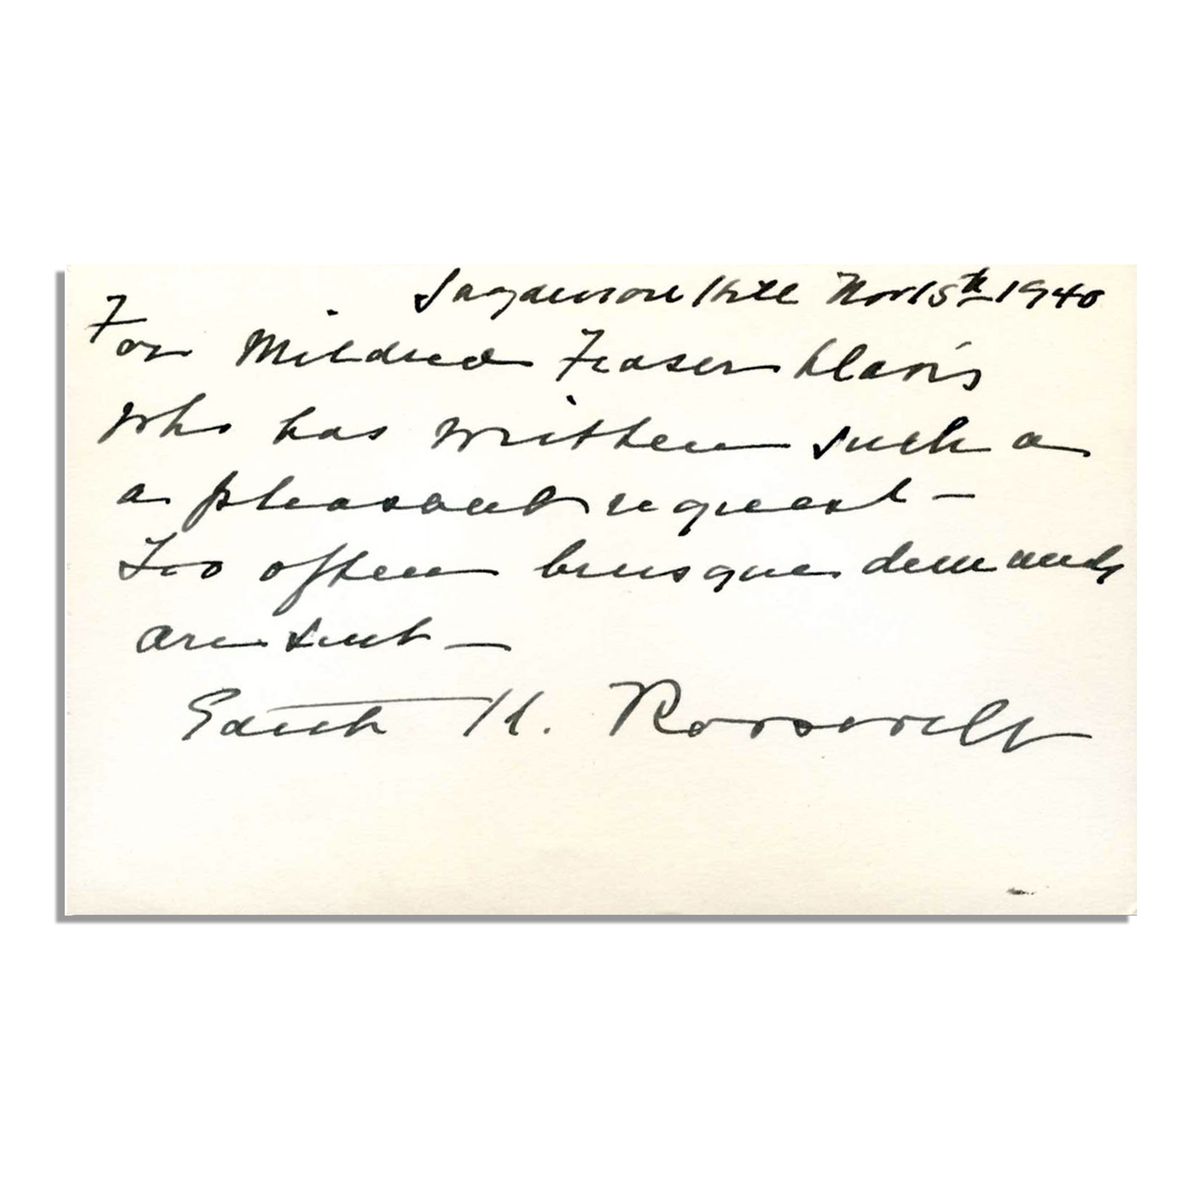 Sagamore Hill Nov 15th 1940
For Mildred Fraser Davis
who has written such a
a pleasant request —
Too often brusque demands
are sent —
Edith K. Roosevelt